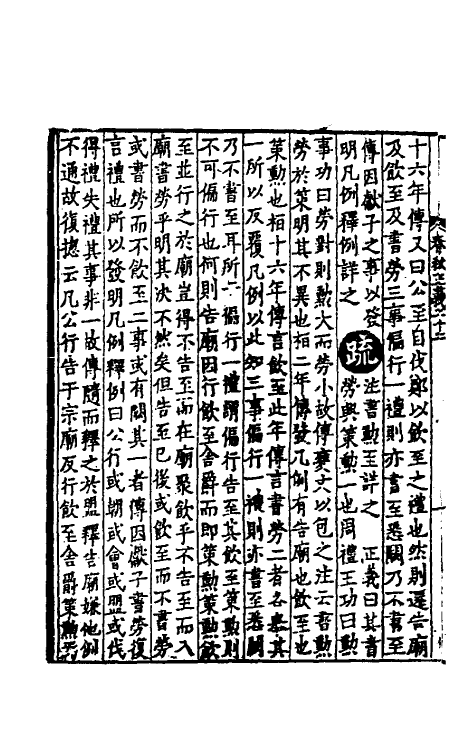 十六年傳又曰公至自伐鄭以飲至之禮也然則還告廟
及飲至及書勞三事偏行一禮則亦書至悉闕乃不書至
傳因獻子之事以發
明凡例釋例詳之
疏
注書勳至詳之 正義曰其書
勞與策勳一也周禮王功曰勳
事功曰勞對則勲大而勞小故傳變文以包之注云書勳
勞於策明其不異也桓二年傳發凡例有告廟也飲至也
策勳也桓十六年傳言飲至此年傳言書勞二者各舉其
一所以反覆凡例以此知三事偏行一禮則亦書至悉闕
乃不書至耳所云偏行一禮謂偏行告至其飲至策勳則
不可偏行也何則告廟因行飲至舍爵而即策勲策勲飲
至並行之於廟豈得不告至而在廟聚飲乎不告至而入
廟書勞乎明其決不然矣但告至已後或飲至而不書勞
或書勞而不飲至二事或有闕其一者傳因獻子書勞復
言禮也所以發明凡例釋例曰公行或朝或會或盟或伐
得禮失禮其事非一故傳隨而釋之於盟釋告廟嫌他例
不通故復揔云凡公行告于宗廟反行飲至舍爵策勲
春秋正義二十二